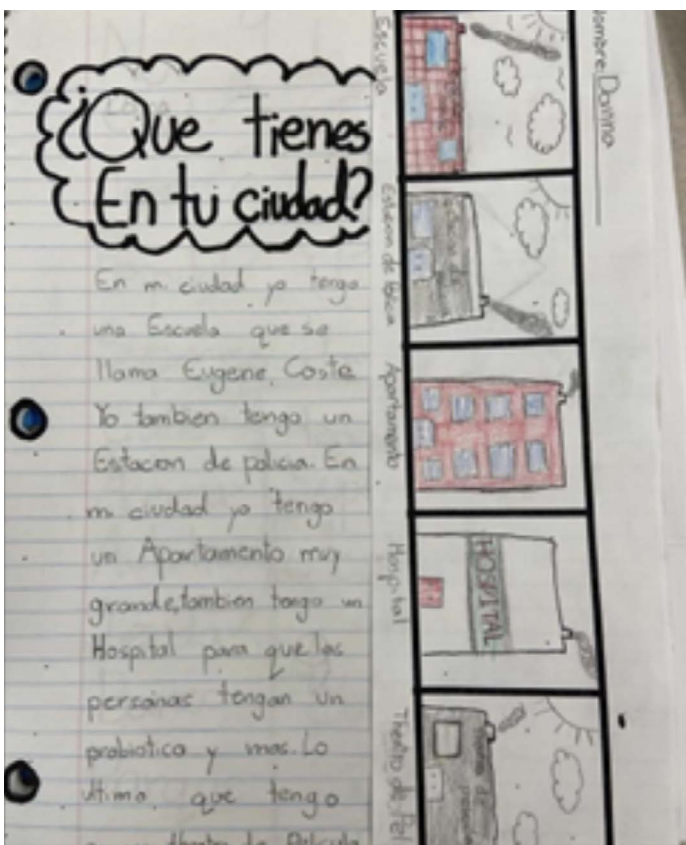 ¿Que tienes
En tu ciudad?
En mi ciudad yo tengo
una Escuela que se
llama Eugene, Coste
Yo tambien tengo un
Estacion de policia. En
mi ciudad yo tengo
un Apartamento muy
grande, tambien tengo un
Hospital para que las
personas tengan un
probiotica y mas. Lo
ultimo que tengo
theatro de Pelicula
Escuela
Estacion de policia
Apartamento
Hospital
Theatro de Pel
HOSPITAL
Nombre: Davina